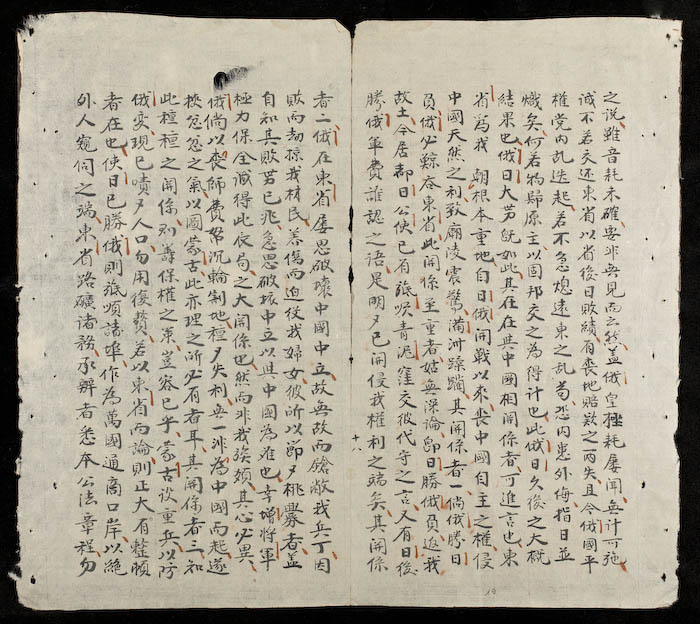 之說雖音耗未確要非無見而云然蓋俄皇極耗屢聞無計可施
誠不若交還東省以省後日敗績有喪地賠欵之兩失且今俄國平
權党內乱迭起若不急熄遠東之乱茍恐內患外侮指日並
熾矣何若物歸原主以固邦交之為得計也此俄日久後之大概
結果也俄日大势既如此其在在與中國相關係者可進言也東
省為我 朝根本重地自日俄開戰以來喪中國自主之權侵
中國天然之利致廟陵震驚滿河蹂躪其關係者一倘俄勝日
員俄必鯨吞東省此關係至重者姑無深論即日勝俄員返我
故土今居都日公使已有旅順青泥窪交彼代守之言又有日後
勝俄軍費誰認之語是明々已開侵我權利之端矣其開係
十八
者二俄在東省屢思破壞中國中立故無故而鎗斃我兵丁因
敗而劫掠我材民姜傷而迫役我婦女彼所以節々挑釁者蓋
自知其敗势已兆急思破壞中立以與中國為难也幸增將軍
極力保全識得此夜局之大關係也然而非我族類其心必異
俄倘以喪師費帑沉輪割地種々失利無一非為中國而起遂
挾忿忿之氣以圖蒙古此亦理之所必有者耳其關係者三知
此種種之開係則籌保權之策豈容已乎蒙古設重兵以防
俄变現已嘖々人口勿用復贅若以東省而論則正大有整頓
者在也使日已勝俄則旅順諸埠作為萬國通商口岸以絕
外人窺伺之端東省路礦诸務承辦者悉本公法章程勿
19